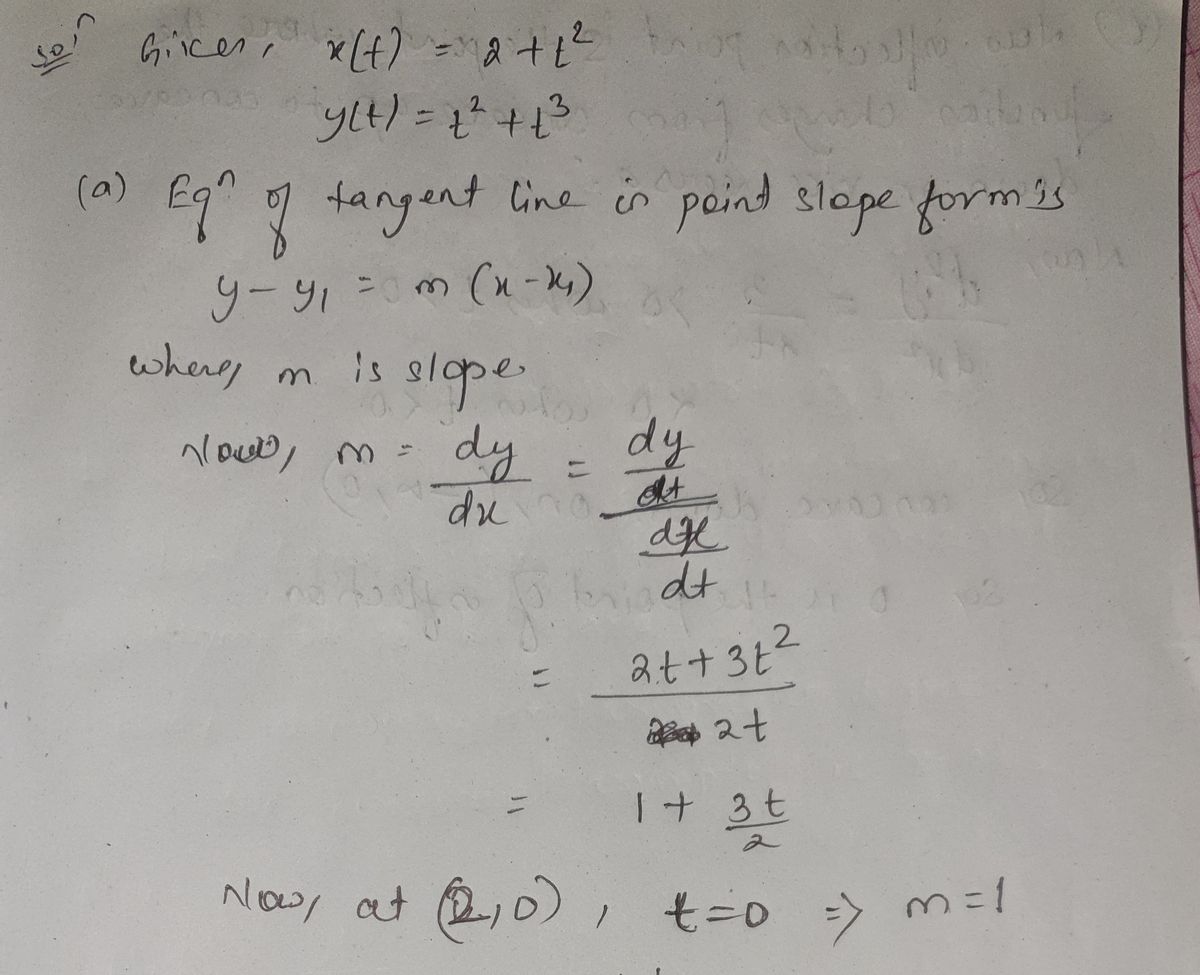 Solⁿ Given, x(t) = 2 + t²
y(t) = t² + t³
(a) Eqⁿ of tangent line in point slope form is
y - y₁ = m (x - x₁)
where, m is slope
Now, m = dy/dx = (dy/dt)/(dx/dt)
= (2t + 3t²)/(2t)
= 1 + 3t/2
Now, at (2,0), t=0 => m=1